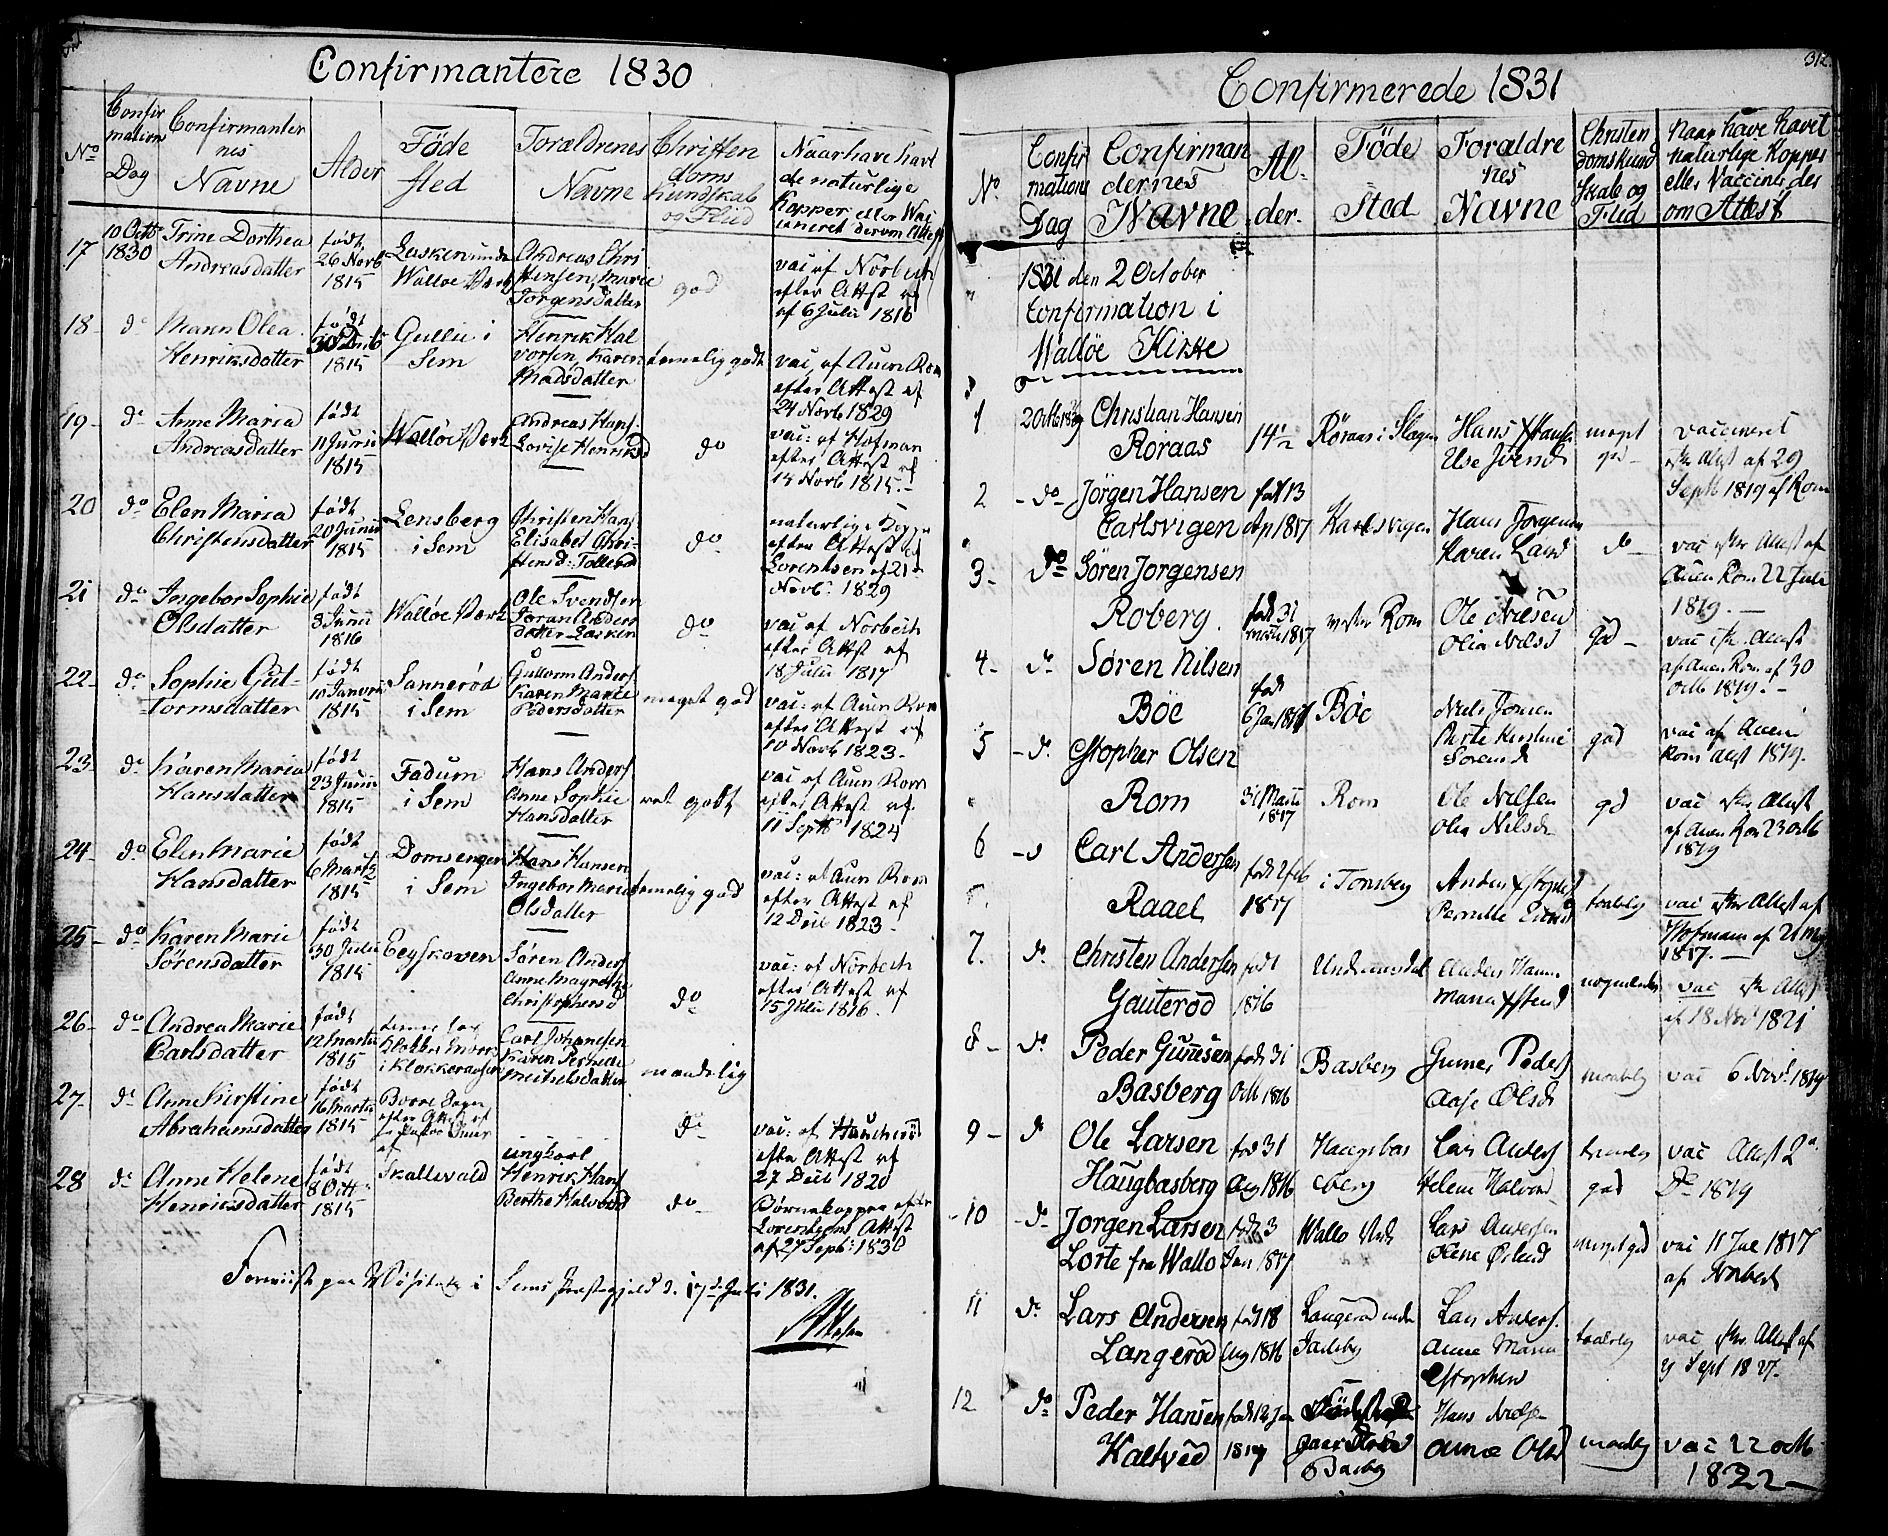 Confirmantere 1830
No
Confir
mations
Dag
Confirmanter
nes
Navne
Alder
Föde
sted
Forældrenes
Navne
Christen
doms
Kundskab
og Flid
Naar have havt
de naturlige
Kopper eller Vac
cineret derom Attest
17
10 Octb
1830
Trine Dorthea
Andreasdatter
født
26 Novb
1815
Walløe Værk
Andreas Chri
stensen, Marie
Jörgensdatter
god
vac af Norbech
efter Attest af
af 6 Julii 1816
18
do
Maren Olea
Henriksdatter
født
1815
Gullie i
Sem
Henrik Hal
vorsen, Karen
Madsdatter
temelig godt
vac af Auen Rom
efter Attest af
24 Novb 1829
19
do
Anne Maria
Andreasdatter
født
11 Junii
1815
Walløe Værk
Andreas Hans
Lovise Henriksd
do
vac: af Hofman
efter Attest af
14 Novb 1815
20
do
Elen Maria
Christensdatter
født
20 Junii
1815
Lensberg
i Sem
Christen Hans
Elisabet Chri-
stensd: Tollerød
do
naturlige Kopper
efter Attest af
Lorentsen af 21
Novb: 1829
21
do
Ingebor Sophie
Olsdatter
født
8 Junii
1816
Walløe Værk
Ole Svendsen
Joran Anders
datter
do
vac af Norbech
efter Attest af
18 Julii 1817
22
do
Sophie Gut-
tormsdatter
født
10 Janvri
1815
Sannerød
i Sem
Guttorm Anders
Karen Marie
Pedersdatter
meget god
vac: af Auen Rom
efter Attest af
10 Novb 1823
23
do
Karen Maria
Hansdatter
født
23 Junii
1815
Fadum
i Sem
Hans Anders
Anne Sophie
Hansdatter
ret godt
vac af Auen Rom
efter Attest af
11 Septb 1824
24
do
Elen Marie
Hansdatter
født
6 Marts
1815
Domsengen
i Sem
Hans Hansen
Ingebor Maria
Olsdatter
temelig god
vac: af Auen Rom
efter Attest af
12 Decb 1823
25
do
Karen Marie
Sørensdatter
født
30 Julii
1815
Eegskoven
Søren Anders
Anne Magrethe
Christophersd
do
vac: af Norbech
efter Attest af
15 Julii 1816
26
do
Andrea Marie
Carlsdatter
født
12 Martii
1815
Carl Johansen
Karen Pernede
Mickelsdatter
maadelig
27
do
Anne Kirstine
Abrahamsdatter
født
16 Martii
1815
Borre Sogn
efter Attest af
do
vac: af
efter Attest af
27 Decb 1820
28
do
Anne Helene
Henriksdatter
født
8 Octb
1815
Skallevald
ungkarl
Henrik Hans
Berthe Halvorsd
do
Børnekopper efter
Lorentsens Attest
af 27 Septb: 1830
Foreviist paa Visitatz i Sems Præstegjeld d. 17de Julii 1831.
312.
Confirmerede 1831
No
Confir
mations
Dag
Confirman
dernes
Navne
Al-
der-
Föde
Sted
Foraldre
nes
Navne
Christen
domskund
skab og
Flid
Naar have havet
naturlige Kopper
eller Vaccineredes
om Attest
1831 den 2 October
Confirmation i
Walløe Kirke
1
Christian Hansen
Roraas
14½
Röraas i Slagen
Hans
meget
god
vaccineret
efter Attest af 29
Septb 1819 af Rom
2
do
Jörgen Hansen
Carlsvigen
født 13
Ap 1817
Karlsvigen
Hans Jorgensen
Karen Lars
do
vac efter Attest af
Auen Rom 22 Juli
1819.
3
do
Sören Jorgensen
Roberg
født 31
Martii 1817
vestre Rom
Ole Nielsen
Olia Nilsd
God
vac efter Attest
af Auen Rom af 30
octb 1819.
4
do
Søren Nilsen
Böe
født
6 Jan 1817
Böe
Niels
god
vac af Auen
Rom Attest 1819.
5
do
Cstopher Olsen
Rom
31 Martii
1817
Rom
Ole Nilsen
Olia Nilsd
god
vac efter Attest
af Auen Rom 23 octb
1819
6
Carl Andersen
Raael
født 2 feb
1817
i Tonsberg
Anders
taalelig
vac efter Attest af
Hofmann af 21 May
1817.
7.
do
Christen Andersen
Gauterød
født
1816
Anders
vac efter Attest
af 18 Nov 1821
8
do
Peder Gunnesen
Basberg
født 31
Octb 1816
Basberg
Gunner Peders
Aase Olsd
maadelig
vac 6 Nov 1819
9
do
Ole Larsen
Haugbasberg
født 31
Aug 1816
Haugbas
berg
Lars Anders
Helene Halvorsd
god
vac Attest
1819
10
do
Jorgen Larsen
Lorte fra Wallo
født 3
Jan 1817
Wallo
Lars Andersen
meget god
vac 11 Jul 1817
af Norbech
11
do
Lars Andersen
Langerød
født 18
Aug 1816
Langerød under
Jarlsberg
Lars Anders.
Anne Maria
taalelig
vac efter Attest af
Sept 1827
12
do
Peder Hansen
Kaltvëd
født 12 Jan
1817
Basberg
Hans Niels
Anne Olsd
maadelig
vac 22 octb
1822